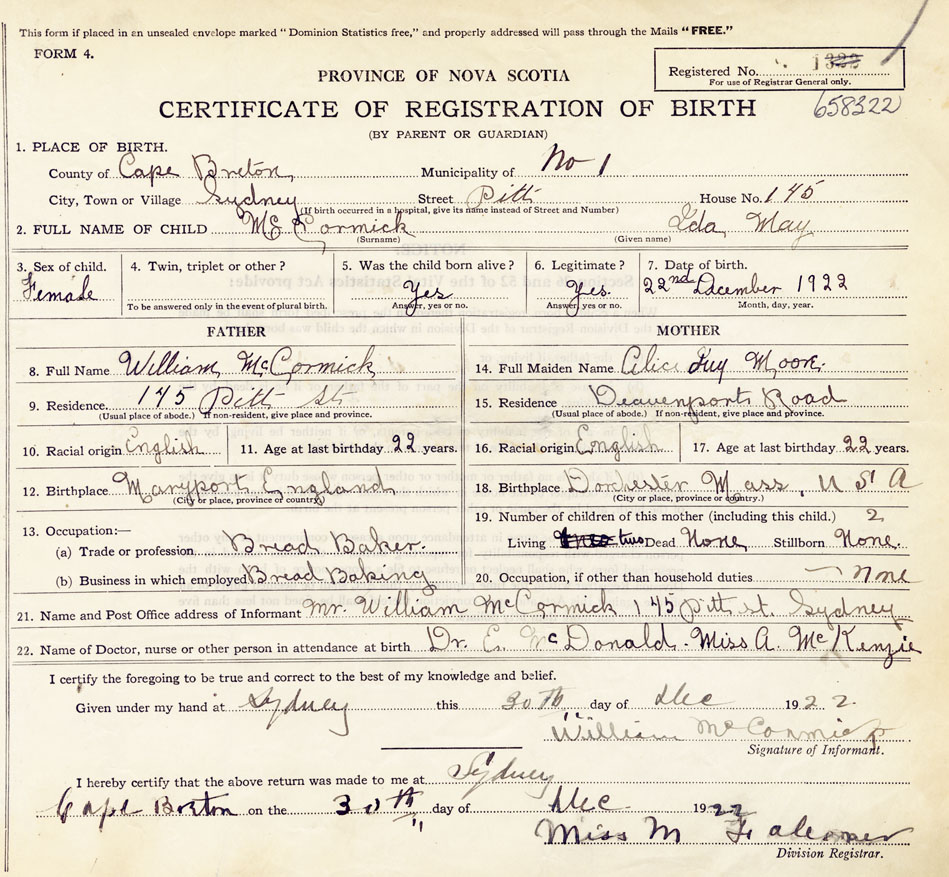 This form if placed in an unsealed envelope marked "Dominion Statistics free," and properly addressed will pass through the Mails "FREE."
FORM 4.
PROVINCE OF NOVA SCOTIA
Registered No.
For use of Registrar General only.
CERTIFICATE OF REGISTRATION OF BIRTH 658322
(BY PARENT OR GUARDIAN)
1. PLACE OF BIRTH.
County of Cape Breton Municipality of No 1
City, Town or Village Sydney Street Pitt House No. 145
(If birth occurred in a hospital, give its name instead of Street and Number)
2. FULL NAME OF CHILD McCormick Ida May
(Surname) (Given name)
3. Sex of child. 4. Twin, triplet or other? 5. Was the child born alive? 6. Legitimate? 7. Date of birth.
Female Yes Yes. 22nd December 1922
To be answered only in the event of plural birth. Answer, yes or no. Answer, yes or no. Month, day, year.
FATHER MOTHER
8. Full Name William McCormick 14. Full Maiden Name Alice Guy Moore.
9. Residence. 145 Pitt St 15. Residence Road
(Usual place of abode.) If non-resident, give place and province. (Usual place of abode.) If non-resident, give place and province.
10. Racial origin English 11. Age at last birthday 22 years. 16. Racial origin English 17. Age at last birthday 22 years.
12. Birthplace Maryport England 18. Birthplace Dorchester Mass, U S A
(City or place, province or country) (City or place, province or country.)
13. Occupation:— 19. Number of children of this mother (including this child.) 2
(a) Trade or profession Bread Baker. Living two Dead None Stillborn None.
(b) Business in which employed Bread Baking 20. Occupation, if other than household duties none
21. Name and Post Office address of Informant Mr. William McCormick 145 pitt st. Sydney
22. Name of Doctor, nurse or other person in attendance at birth Dr. E. McDonald. Miss A. McKenzie
I certify the foregoing to be true and correct to the best of my knowledge and belief.
Given under my hand at Sydney this 30th day of Dec 1922.
William McCormick
Signature of Informant.
I hereby certify that the above return was made to me at Sydney
Cape Breton on the 30th day of Dec. 1922
Miss M Falconer
Division Registrar.